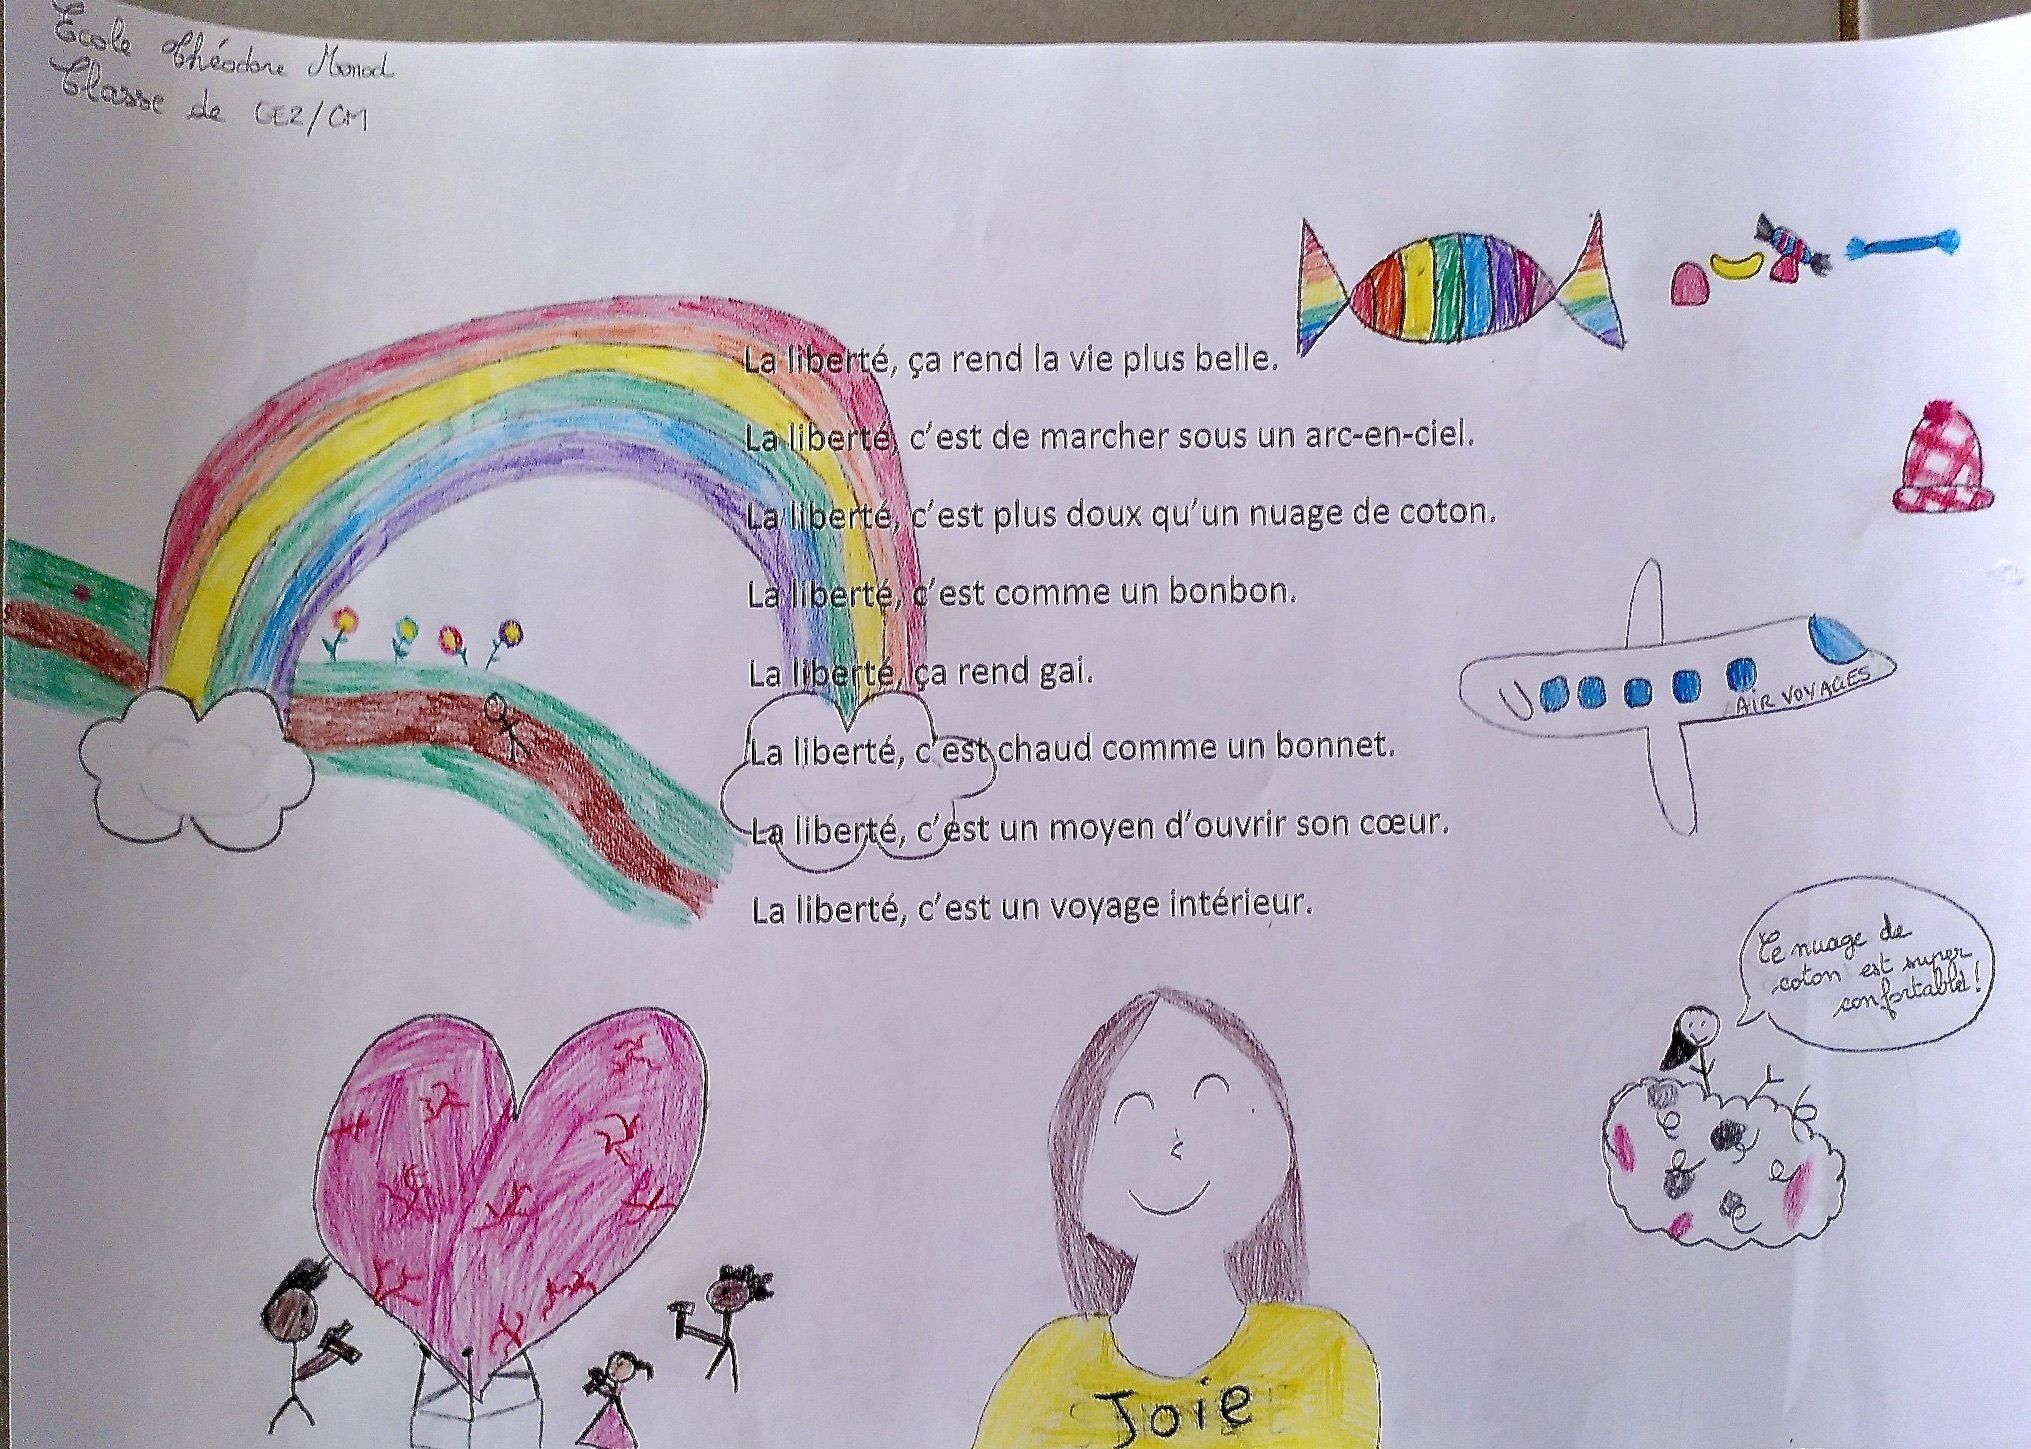 Ecole Théodore Monod
Classe de CE2/CM
La liberté, ça rend la vie plus belle.
La liberté, c'est de marcher sous un arc-en-ciel.
La liberté, c'est plus doux qu'un nuage de coton.
La liberté, c'est comme un bonbon.
La liberté, ça rend gai.
La liberté, c'est chaud comme un bonnet.
La liberté, c'est un moyen d'ouvrir son cœur.
La liberté, c'est un voyage intérieur.
AIR VOYAGES
Ce nuage de
coton est super
confortable!
Joie